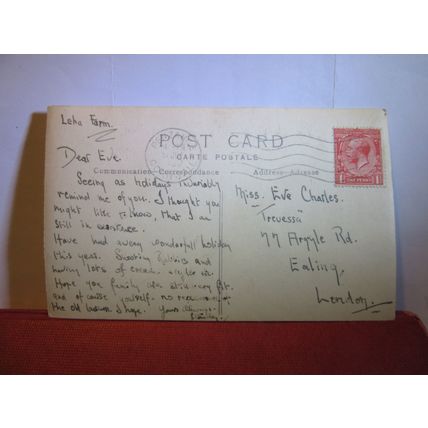 Leha Farm.
POST CARD
CARTE POSTALE
Communication-Correspondance
Address-Adresse
Dear Eve.
Seeing as holidays invariably
remind me of you. I thought you
might like to know that I am
still in existence.
Have had a very wonderfull holiday
this year. Shooting Rabbits and
having lots of cream
Hope you family are still very fit.
and of course yourself. no
the old I hope. Yours
Miss. Eve Charles.
"Trevessa"
77 Argyle Rd.
Ealing,
London.
ONE PENNY